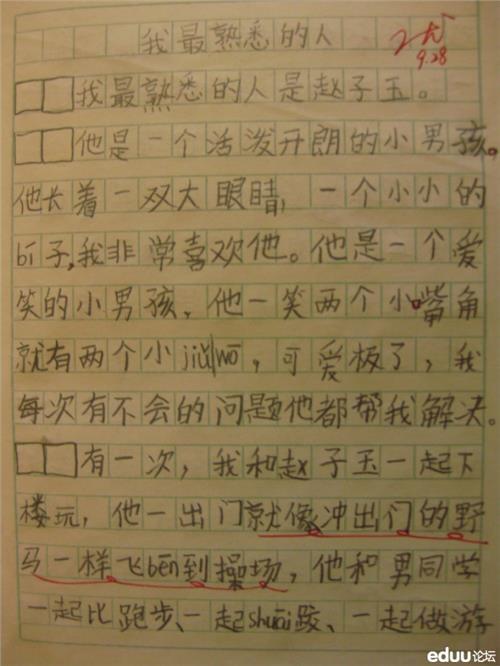 我最熟悉的人
9.28
我最熟悉的人是赵子玉。
他是一个活泼开朗的小男孩。
他长着一双大眼睛，一个小小的
bí子，我非常喜欢他。他是一个爱
笑的小男孩，他一笑两个小嘴角
就有两个小jiǔwō，可爱极了，我
每次有不会的问题他都帮我解决。
有一次，我和赵子玉一起下
楼玩，他一出门就像冲出门的野
马一样飞bēn到操场，他和男同学
一起比跑步、一起shuāi跤、一起做游
eduu论坛